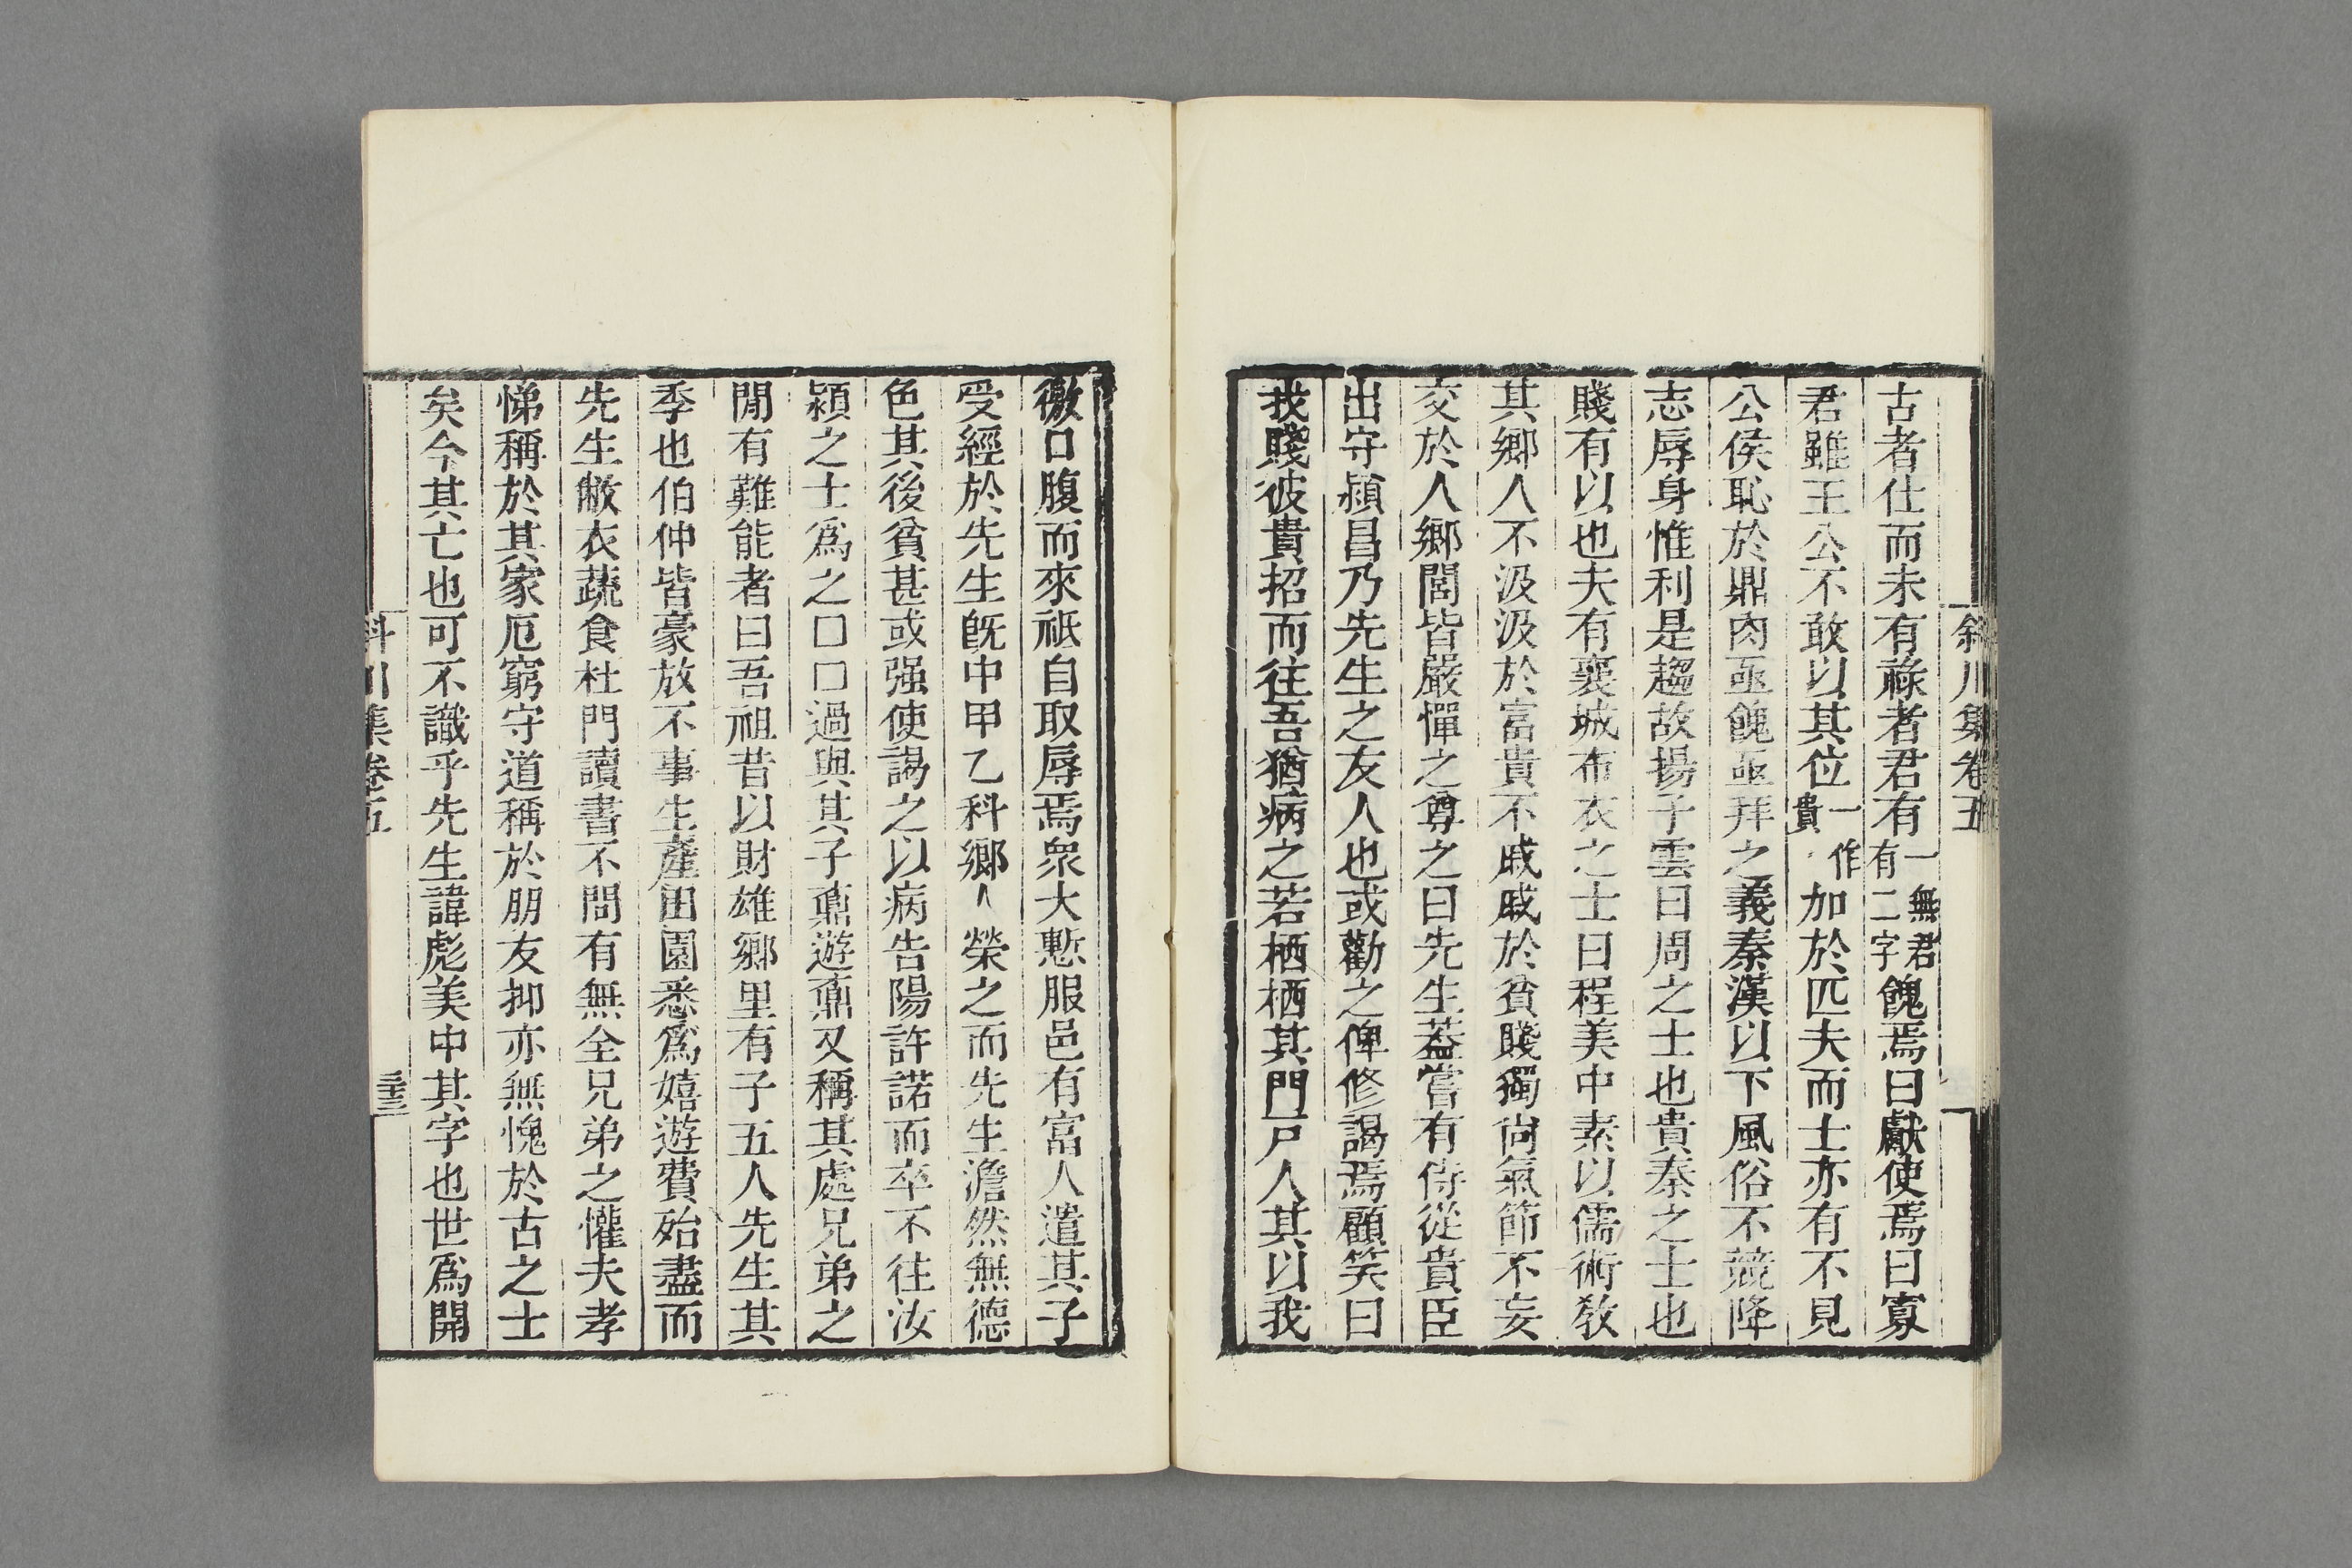 斜川集卷五
古者仕而未有祿者君有一無君有二字餽焉曰獻使焉曰寡
君雖王公不敢以其位一作貴加於匹夫而士亦有不見
公侯恥於鼎肉亟餽亟拜之義秦漢以下風俗不競降
志辱身惟利是趨故揚子雲曰周之士也貴秦之士也
賤有以也夫有襄城布衣之士曰程美中素以儒術敎
其鄉人不汲汲於富貴不戚戚於貧賤獨尙氣節不妄
交於人鄉閭皆嚴憚之尊之曰先生葢嘗有侍從貴臣
出守潁昌乃先生之友人也或勸之俾修謁焉顧笑曰
我賤彼貴招而往吾猶病之若栖栖其門尸人其以我
徼口腹而來祇自取辱焉衆大慙服邑有富人遣其子
受經於先生旣中甲乙科鄉人榮之而先生澹然無德
色其後貧甚或强使謁之以病告陽許諾而卒不往汝
潁之士爲之口口口過與其子鼐遊鼐又稱其處兄弟之
閒有難能者曰吾祖昔以財雄鄉里有子五人先生其
季也伯仲皆豪放不事生產田園悉爲嬉遊費殆盡而
先生敝衣蔬食杜門讀書不問有無全兄弟之懽夫孝
悌稱於其家厄窮守道稱於朋友抑亦無愧於古之士
矣今其亡也可不識乎先生諱彪美中其字也世爲開
斜川集卷五